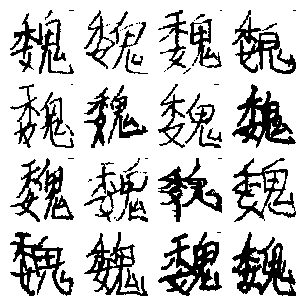 魏魏魏魏
魏魏魏魏
魏魏魏魏
魏魏魏魏